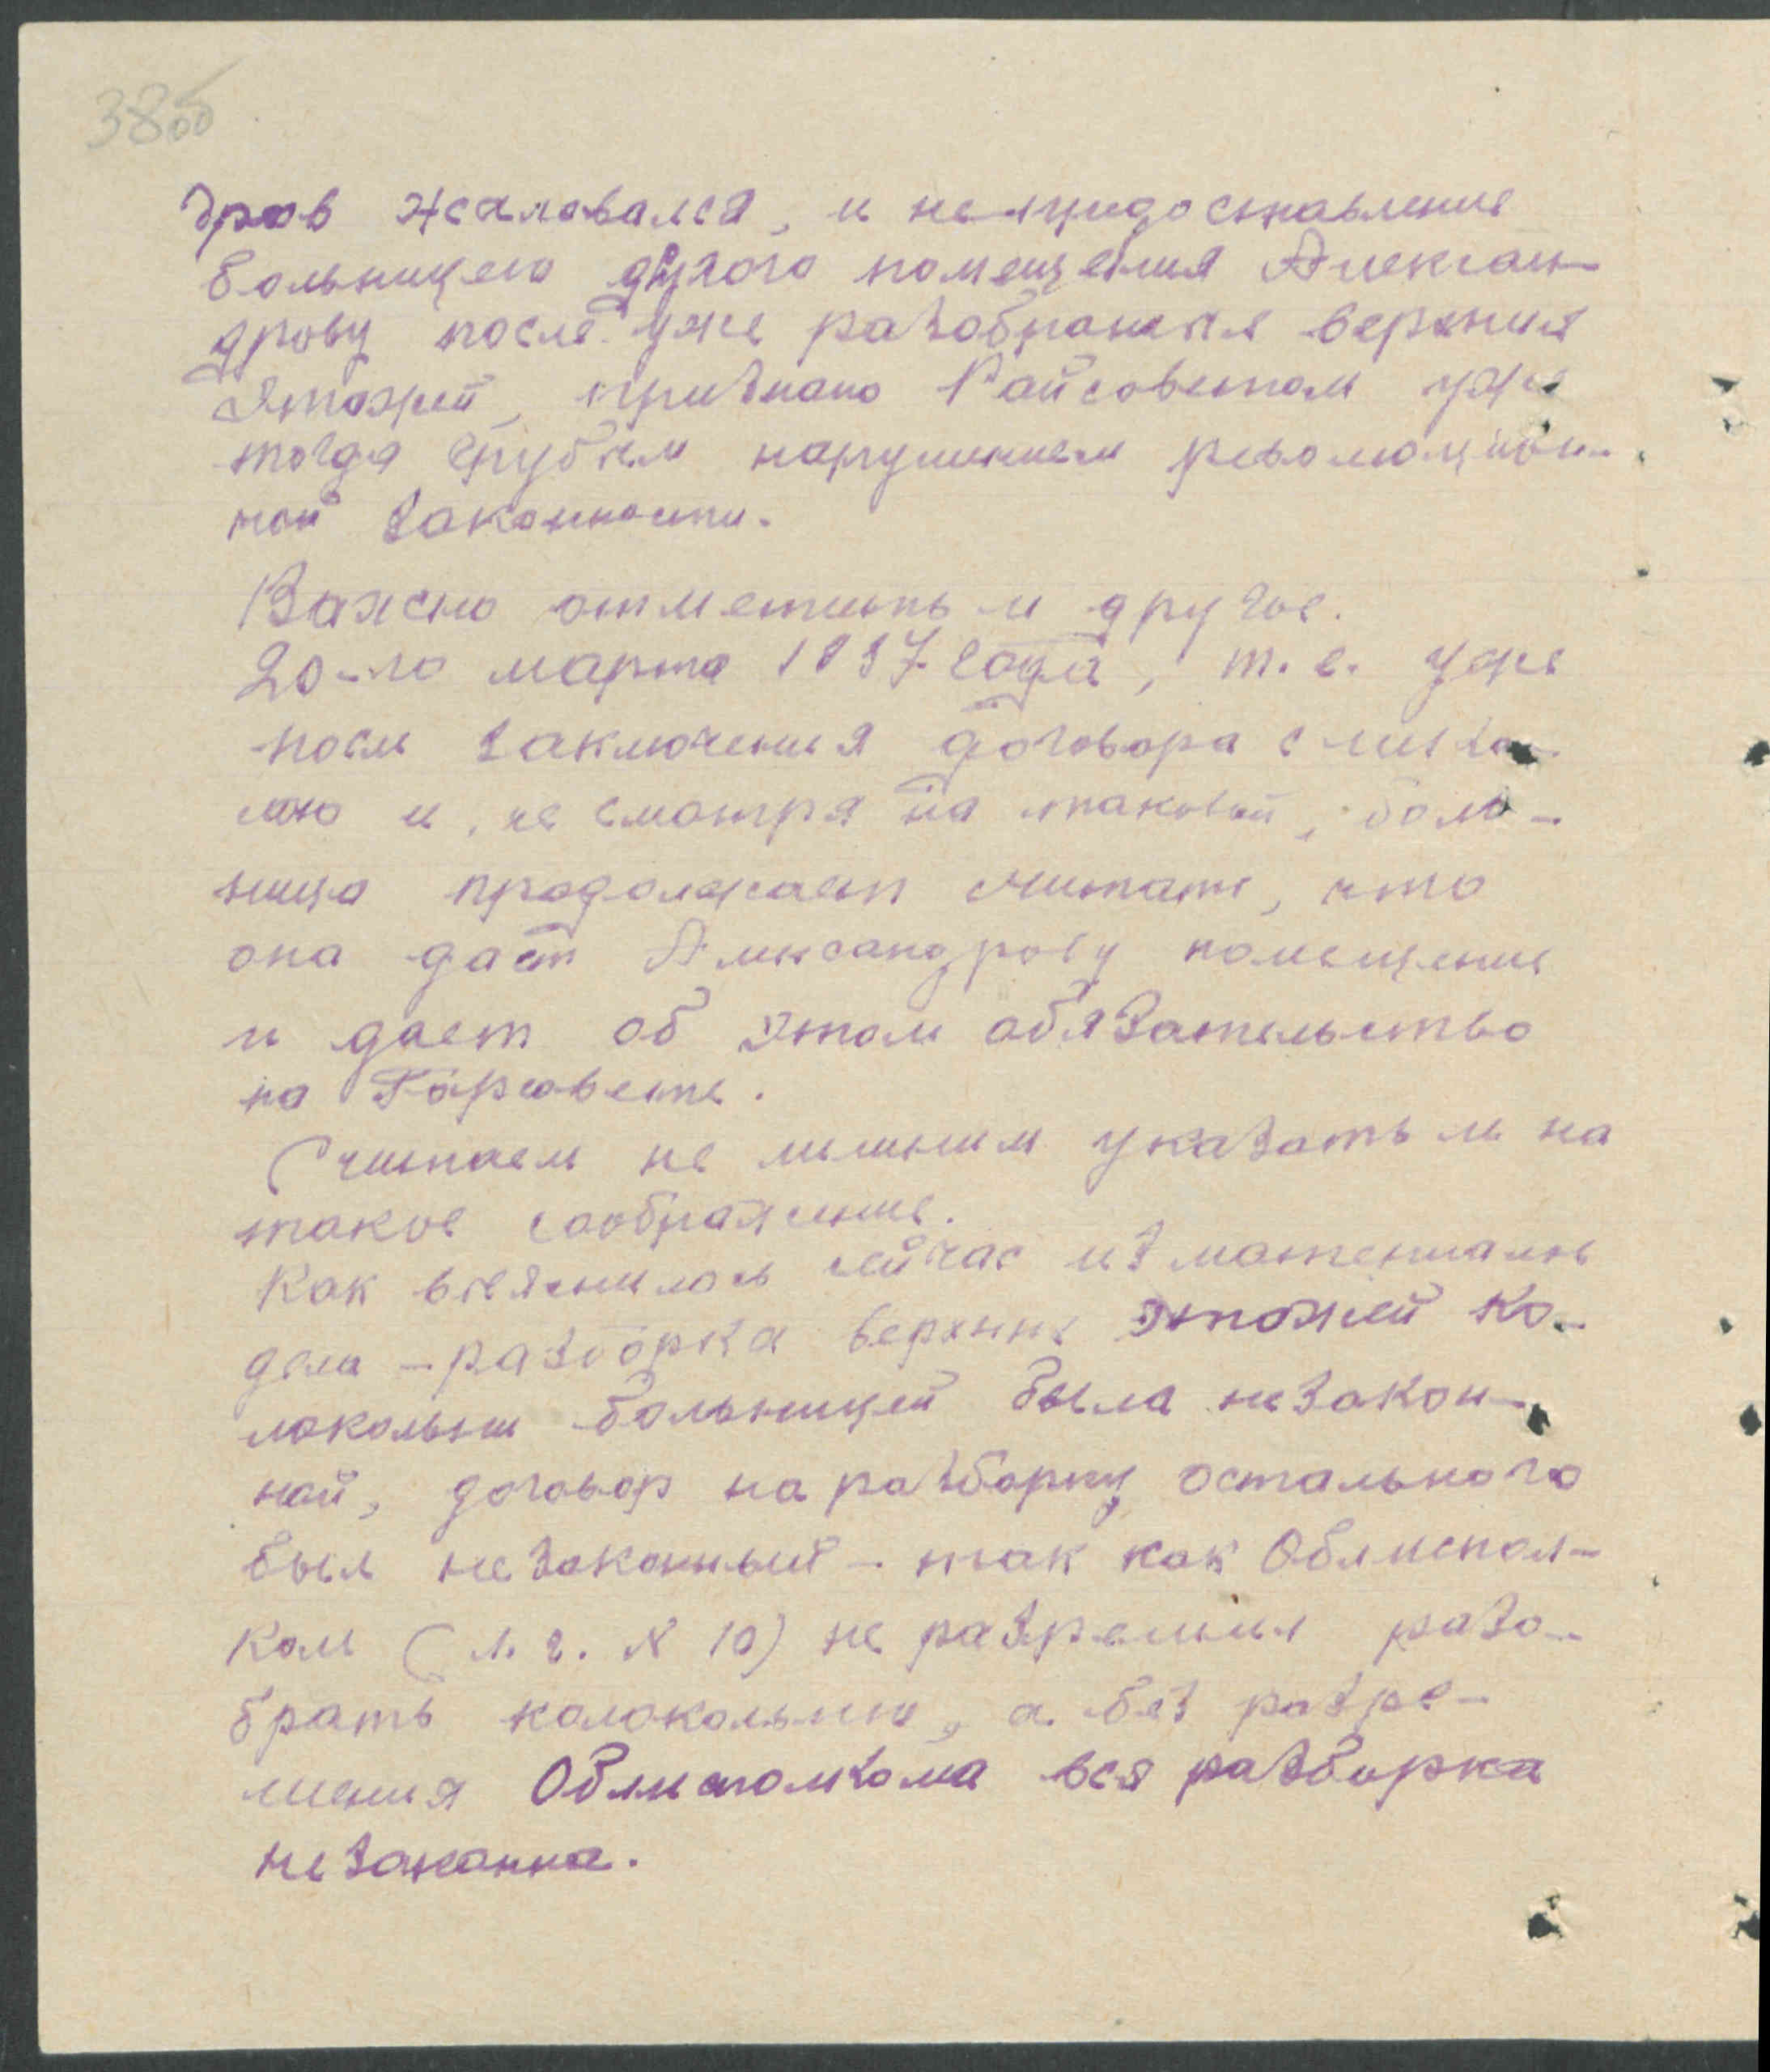 38об
дров жаловался, и непредоставление
больницею другого помещения Алексан-
дрову после уже разобрания верхния
этажей, признано Райсоветом уже
тогда грубым нарушением революцион-
ной законности.
Важно отметить и другое.
20-го марта 1937 года, т.е. уже
после заключения договора с
и, не смотря на таковой, боль-
ница продолжает считать, что
она даст Александрову помещение
и дает об этом обязательство
на Горсовете.
Считаем не лишним указать и на
такое соображение.
Как выяснилось сейчас из материалов
дела - разборка верхних этажей ко-
локольни больницей была незакон-
ной, договор на разборку остального
был незаконный - так как Облиспол-
ком (л. г. N 10) не разрешил разо-
брать колокольню, а без разре-
шения Облисполкома вся разборка
незаконна.